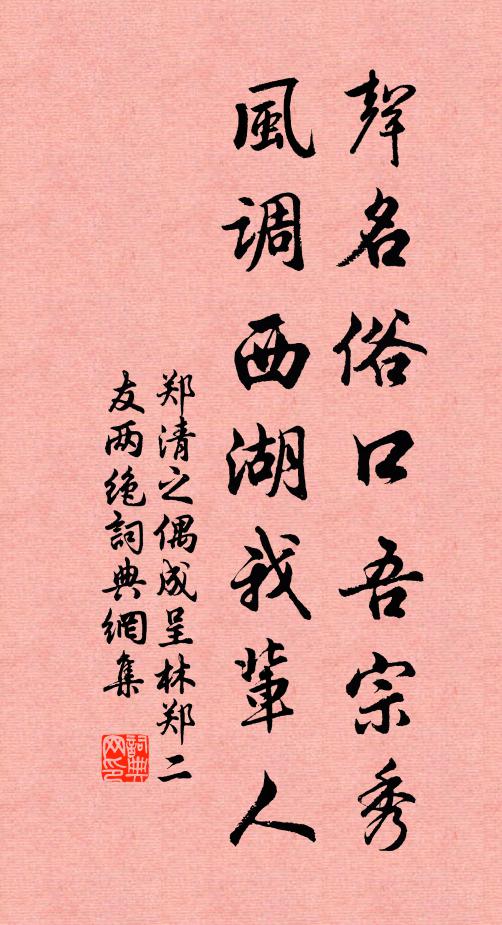 聲名俗口吾宗秀
風调西湖我輩人
郑清之偶成呈林郑二
友两绝詞典網集
詞典网印